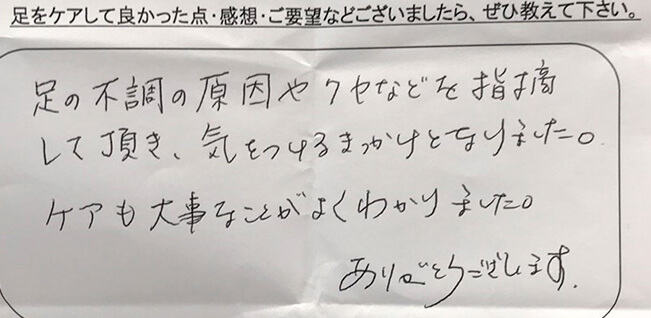 足をケアして良かった点・感想・ご要望などございましたら、ぜひ教えて下さい。
足の不調の原因やクセなどを指摘
して頂き、気をつけるきっかけとなりました。
ケアも大事なことがよくわかりました。
ありがとうございます。